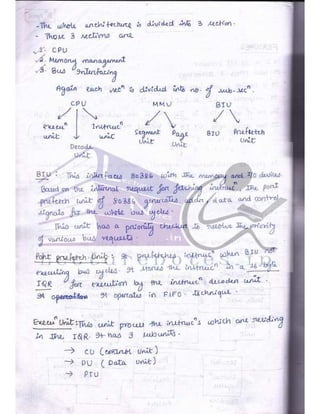 - The whole architecture is divided into 3 section.
- Those 3 sections are
1. CPU
2. Memory management
3. Bus Interfacing
Again each secn is divided into no. of sub-secn.
CPU MMU BIU
Execun unit Decode Unit Instrucn unit Segment Unit Page Unit BIU Prefetch Unit
BIU : This interfaces 80386 with the memory and I/O devices.
Based on the internal request for fetching instrucn, the
prefetch unit of 80386 generates addrn, data and control
signals for the whole bus cycles.
This unit has a priority checker to resolve the priority
of various bus requests.
prefetch Unit : It prefetches instrucn when BIU not
executing bus cycles. It stores the instrucn in a 16-byte
IQR for execution by the instrucn decoder unit.
It operates in FIFO technique.
Execun Unit : This unit process the instrucns which are residing
in the IQR. It has 3 subunits.
→ CU (control Unit)
→ DU (Data Unit)
→ PTU